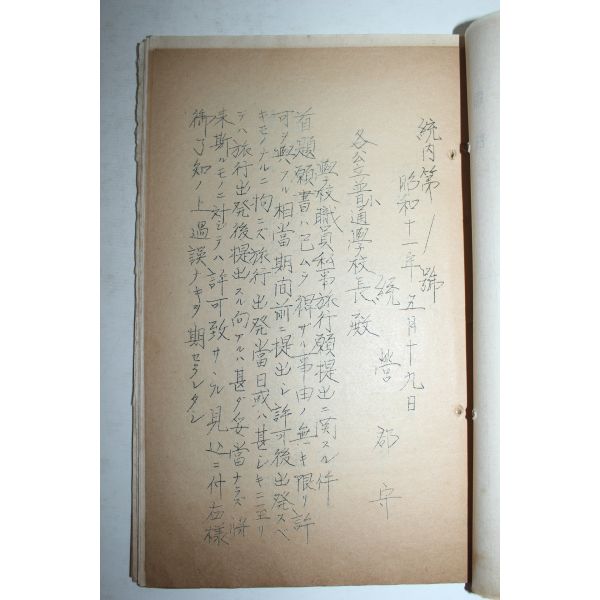 統内第 號
昭和十一年五月十九日
統營郡守
各公立普通學校長殿
小
學校職員私事旅行願提出ニ関スル件
首題願書ハ已ムヲ得ザル事由ノ無キ限リ許
可ヲ與フル相當期間前ニ提出シ許可後出発スベ
キモノナルニ拘ラズ旅行出発當日或ハ甚シキニ至リ
テハ旅行出発後提出スル向アルハ甚ダ妥當ナラズ将
来斯ルモノニ対シテハ許可致サヾル見込ニ付右様
御了知ノ上過誤ナキヲ期セラレタシ